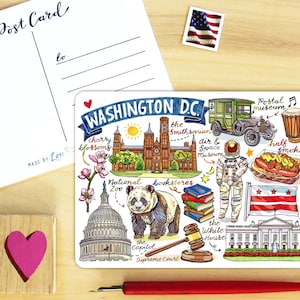 Post Card
to
MADE BY
WASHINGTON D.C.
the
Smithsonian
Postal
museum
cherry
blossoms
air &
Space
Museum
half
smoke
National
Zoo
bookstores
the
White
House
the
Capitol
Supreme Court